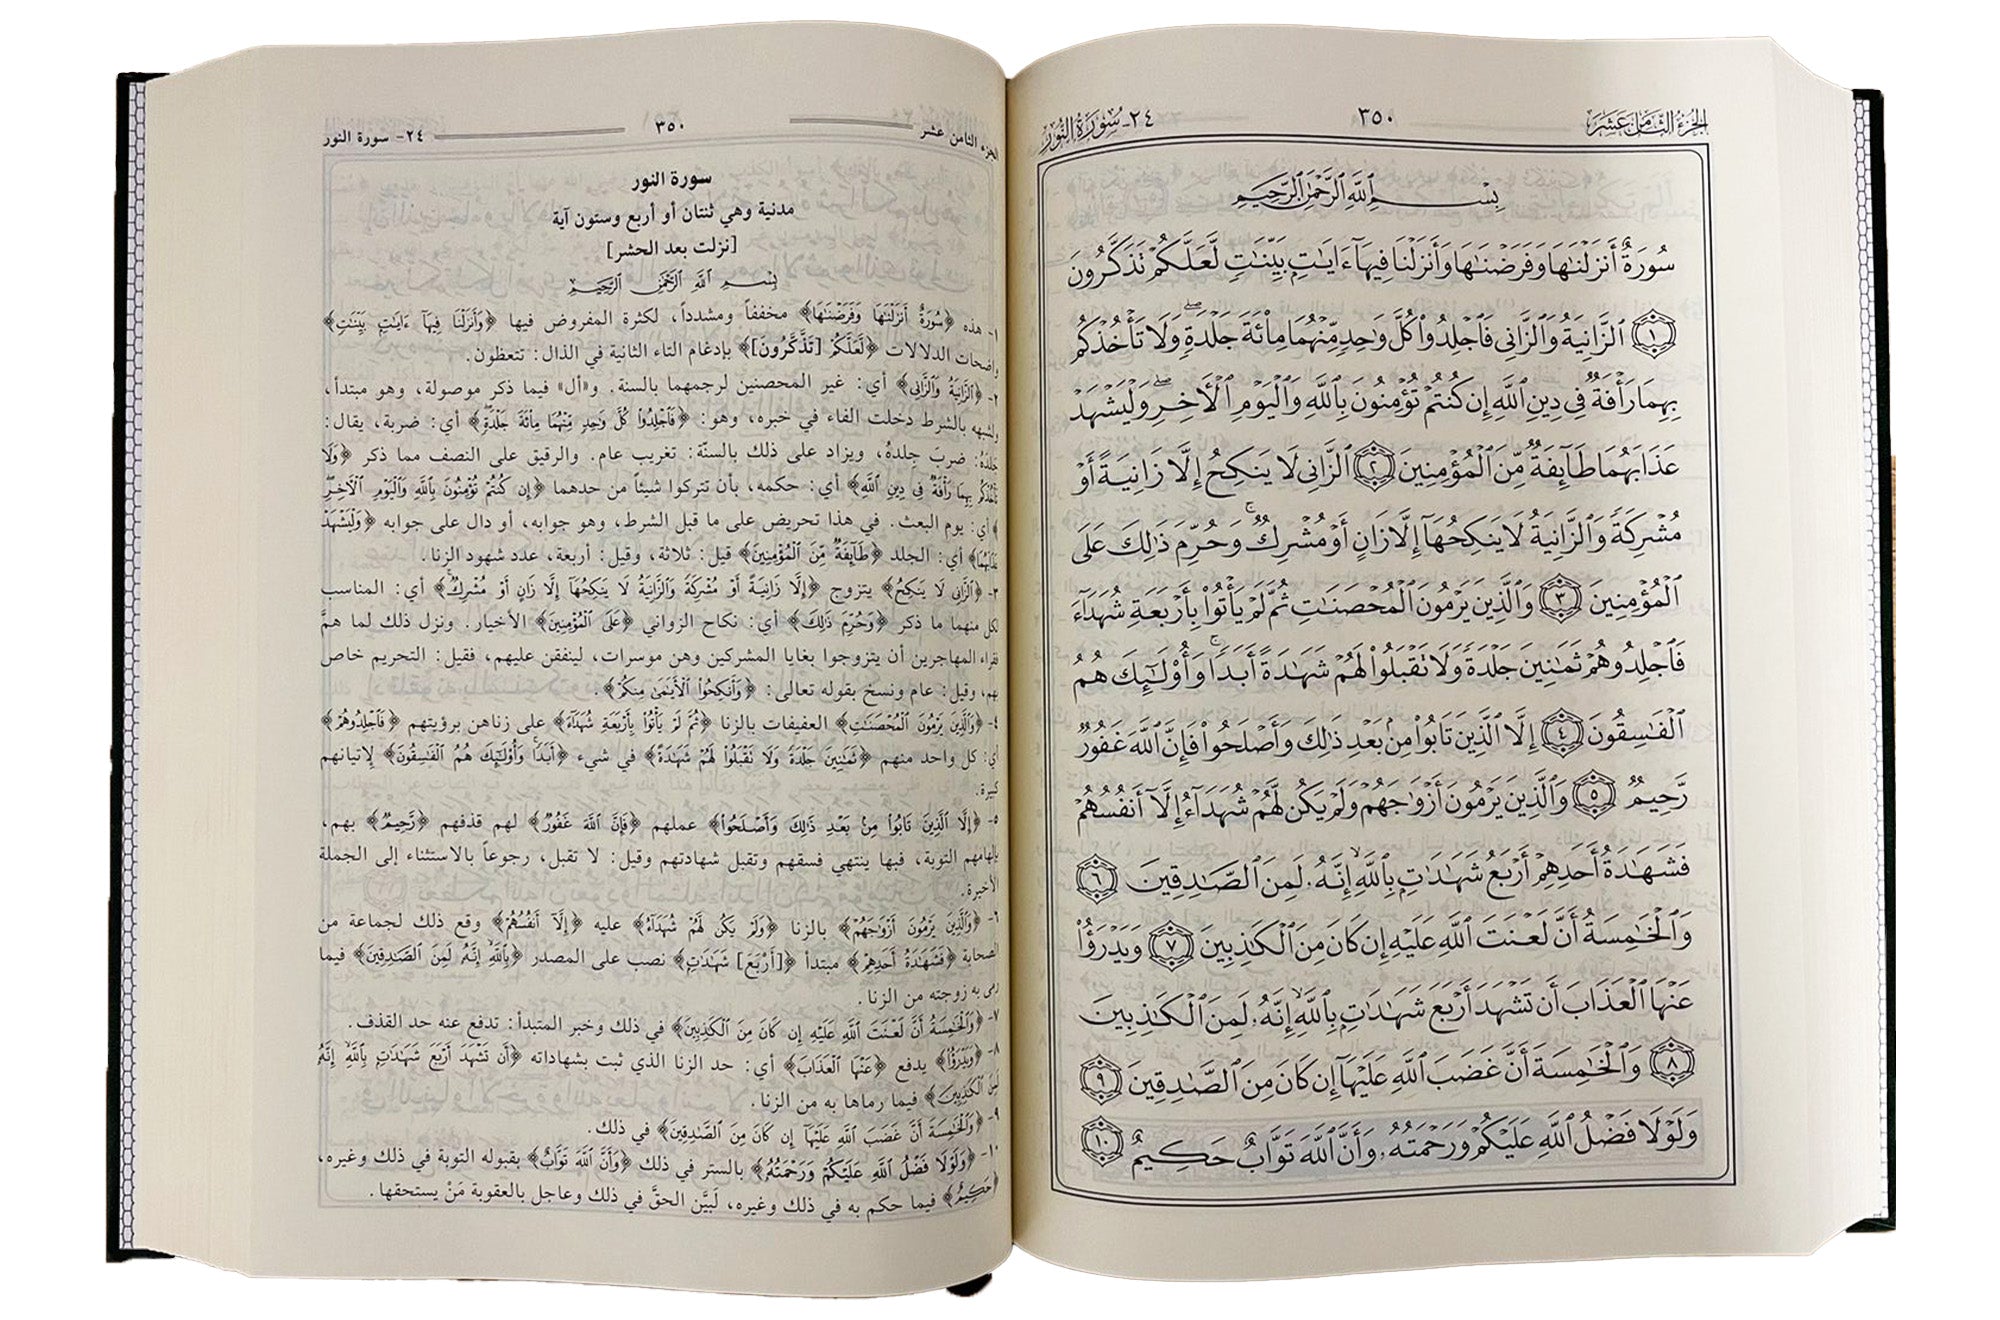 الجزء الثامن عشر ٣٥٠ ٢٤- سورة النور
بِسْمِ اللَّهِ الرَّحْمَٰنِ الرَّحِيمِ
سُورَةٌ أَنزَلْنَٰهَا وَفَرَضْنَٰهَا وَأَنزَلْنَا فِيهَآ ءَايَٰتٍۭ بَيِّنَٰتٍ لَّعَلَّكُمْ تَذَكَّرُونَ
١ ٱلزَّانِيَةُ وَٱلزَّانِى فَٱجْلِدُوا۟ كُلَّ وَٰحِدٍ مِّنْهُمَا مِا۟ئَةَ جَلْدَةٍ ۖ وَلَا تَأْخُذْكُم
بِهِمَا رَأْفَةٌ فِى دِينِ ٱللَّهِ إِن كُنتُمْ تُؤْمِنُونَ بِٱللَّهِ وَٱلْيَوْمِ ٱلْءَاخِرِ ۖ وَلْيَشْهَدْ
عَذَابَهُمَا طَآئِفَةٌ مِّنَ ٱلْمُؤْمِنِينَ ٢ ٱلزَّانِى لَا يَنكِحُ إِلَّا زَانِيَةً أَوْ
مُشْرِكَةً وَٱلزَّانِيَةُ لَا يَنكِحُهَآ إِلَّا زَانٍ أَوْ مُشْرِكٌ ۚ وَحُرِّمَ ذَٰلِكَ عَلَى
ٱلْمُؤْمِنِينَ ٣ وَٱلَّذِينَ يَرْمُونَ ٱلْمُحْصَنَٰتِ ثُمَّ لَمْ يَأْتُوا۟ بِأَرْبَعَةِ شُهَدَآءَ
فَٱجْلِدُوهُمْ ثَمَٰنِينَ جَلْدَةً وَلَا تَقْبَلُوا۟ لَهُمْ شَهَٰدَةً أَبَدًا ۚ وَأُو۟لَٰٓئِكَ هُمُ
ٱلْفَٰسِقُونَ ٤ إِلَّا ٱلَّذِينَ تَابُوا۟ مِنۢ بَعْدِ ذَٰلِكَ وَأَصْلَحُوا۟ فَإِنَّ ٱللَّهَ غَفُورٌ
رَّحِيمٌ ٥ وَٱلَّذِينَ يَرْمُونَ أَزْوَٰجَهُمْ وَلَمْ يَكُن لَّهُمْ شُهَدَآءُ إِلَّآ أَنفُسُهُمْ
فَشَهَٰدَةُ أَحَدِهِمْ أَرْبَعُ شَهَٰدَٰتٍۭ بِٱللَّهِ ۙ إِنَّهُۥ لَمِنَ ٱلصَّٰدِقِينَ ٦
وَٱلْخَٰمِسَةُ أَنَّ لَعْنَتَ ٱللَّهِ عَلَيْهِ إِن كَانَ مِنَ ٱلْكَٰذِبِينَ ٧ وَيَدْرَؤُا۟
عَنْهَا ٱلْعَذَابَ أَن تَشْهَدَ أَرْبَعَ شَهَٰدَٰتٍۭ بِٱللَّهِ ۙ إِنَّهُۥ لَمِنَ ٱلْكَٰذِبِينَ
٨ وَٱلْخَٰمِسَةَ أَنَّ غَضَبَ ٱللَّهِ عَلَيْهَآ إِن كَانَ مِنَ ٱلصَّٰدِقِينَ ٩
وَلَوْلَا فَضْلُ ٱللَّهِ عَلَيْكُمْ وَرَحْمَتُهُۥ وَأَنَّ ٱللَّهَ تَوَّابٌ حَكِيمٌ ١٠
الجزء الثامن عشر ٣٥٠ ٢٤- سورة النور
سورة النور
مدنية وهي ثنتان أو أربع وستون آية
[نزلت بعد الحشر]
بِسْمِ اللَّهِ الرَّحْمَٰنِ الرَّحِيمِ
١- هذه ﴿سُورَةٌ أَنزَلْنَٰهَا وَفَرَضْنَٰهَا﴾ مخففاً ومشدداً، لكثرة المفروض فيها ﴿وَأَنزَلْنَا فِيهَآ ءَايَٰتٍۭ بَيِّنَٰتٍ﴾
واضحات الدلالات ﴿لَّعَلَّكُمْ [تَذَّكَّرُونَ]﴾ بإدغام التاء الثانية في الذال: تتعظون.
٢- ﴿ٱلزَّانِيَةُ وَٱلزَّانِى﴾ أي: غير المحصنين لرجمهما بالسنة. و«أل» فيما ذكر موصولة، وهو مبتدأ،
ولشبهه بالشرط دخلت الفاء في خبره، وهو: ﴿فَٱجْلِدُوا۟ كُلَّ وَٰحِدٍ مِّنْهُمَا مِا۟ئَةَ جَلْدَةٍ﴾ أي: ضربة، يقال:
جلدَهُ: ضربَ جِلدهُ، ويزاد على ذلك بالسنّة: تغريب عام. والرقيق على النصف مما ذكر ﴿وَلَا
تَأْخُذْكُم بِهِمَا رَأْفَةٌ فِى دِينِ ٱللَّهِ﴾ أي: حكمه، بأن تتركوا شيئاً من حدهما ﴿إِن كُنتُمْ تُؤْمِنُونَ بِٱللَّهِ وَٱلْيَوْمِ ٱلْءَاخِرِ
﴾ أي: يوم البعث. في هذا تحريض على ما قبل الشرط، وهو جوابه، أو دال على جوابه ﴿وَلْيَشْهَدْ
عَذَابَهُمَا﴾ أي: الجلد ﴿طَآئِفَةٌ مِّنَ ٱلْمُؤْمِنِينَ﴾ قيل: ثلاثة، وقيل: أربعة، عدد شهود الزنا.
٣- ﴿ٱلزَّانِى لَا يَنكِحُ﴾ يتزوج ﴿إِلَّا زَانِيَةً أَوْ مُشْرِكَةً وَٱلزَّانِيَةُ لَا يَنكِحُهَآ إِلَّا زَانٍ أَوْ مُشْرِكٌ﴾ أي: المناسب
لكل منهما ما ذكر ﴿وَحُرِّمَ ذَٰلِكَ﴾ أي: نكاح الزواني ﴿عَلَى ٱلْمُؤْمِنِينَ﴾ الأخيار. ونزل ذلك لما همَّ
فقراء المهاجرين أن يتزوجوا بغايا المشركين وهن موسرات، لينفقن عليهم، فقيل: التحريم خاص
بهم، وقيل: عام ونسخ بقوله تعالى: ﴿وَأَنكِحُوا۟ ٱلْأَيَٰمَىٰ مِنكُمْ﴾.
٤- ﴿وَٱلَّذِينَ يَرْمُونَ ٱلْمُحْصَنَٰتِ﴾ العفيفات بالزنا ﴿ثُمَّ لَمْ يَأْتُوا۟ بِأَرْبَعَةِ شُهَدَآءَ﴾ على زناهن برؤيتهم ﴿فَٱجْلِدُوهُمْ﴾
أي: كل واحد منهم ﴿ثَمَٰنِينَ جَلْدَةً وَلَا تَقْبَلُوا۟ لَهُمْ شَهَٰدَةً﴾ في شيء ﴿أَبَدًا ۚ وَأُو۟لَٰٓئِكَ هُمُ ٱلْفَٰسِقُونَ﴾ لإتيانهم
كبيرة.
٥- ﴿إِلَّا ٱلَّذِينَ تَابُوا۟ مِنۢ بَعْدِ ذَٰلِكَ وَأَصْلَحُوا۟﴾ عملهم ﴿فَإِنَّ ٱللَّهَ غَفُورٌ﴾ لهم قذفهم ﴿رَّحِيمٌ﴾ بهم،
بإلهامهم التوبة، فبها ينتهي فسقهم وتقبل شهادتهم وقيل: لا تقبل، رجوعاً بالاستثناء إلى الجملة
الأخيرة.
٦- ﴿وَٱلَّذِينَ يَرْمُونَ أَزْوَٰجَهُمْ﴾ بالزنا ﴿وَلَمْ يَكُن لَّهُمْ شُهَدَآءُ﴾ عليه ﴿إِلَّآ أَنفُسُهُمْ﴾ وقع ذلك لجماعة من
الصحابة ﴿فَشَهَٰدَةُ أَحَدِهِمْ﴾ مبتدأ ﴿[أَرْبَعَ] شَهَٰدَٰتٍ﴾ نصب على المصدر ﴿بِٱللَّهِ ۙ إِنَّهُۥ لَمِنَ ٱلصَّٰدِقِينَ﴾ فيما
رمى به زوجته من الزنا.
٧- ﴿وَٱلْخَٰمِسَةُ أَنَّ لَعْنَتَ ٱللَّهِ عَلَيْهِ إِن كَانَ مِنَ ٱلْكَٰذِبِينَ﴾ في ذلك وخبر المبتدأ: تدفع عنه حد القذف.
٨- ﴿وَيَدْرَؤُا۟﴾ يدفع ﴿عَنْهَا ٱلْعَذَابَ﴾ أي: حد الزنا الذي ثبت بشهاداته ﴿أَن تَشْهَدَ أَرْبَعَ شَهَٰدَٰتٍۭ بِٱللَّهِ ۙ إِنَّهُۥ
لَمِنَ ٱلْكَٰذِبِينَ﴾ فيما رماها به من الزنا.
٩- ﴿وَٱلْخَٰمِسَةَ أَنَّ غَضَبَ ٱللَّهِ عَلَيْهَآ إِن كَانَ مِنَ ٱلصَّٰدِقِينَ﴾ في ذلك.
١٠- ﴿وَلَوْلَا فَضْلُ ٱللَّهِ عَلَيْكُمْ وَرَحْمَتُهُ﴾ بالستر في ذلك ﴿وَأَنَّ ٱللَّهَ تَوَّابٌ﴾ بقبوله التوبة في ذلك وغيره،
﴿حَكِيمٌ﴾ فيما حكم به في ذلك وغيره، لَبيَّن الحقَّ في ذلك وعاجل بالعقوبة مَنْ يستحقها.